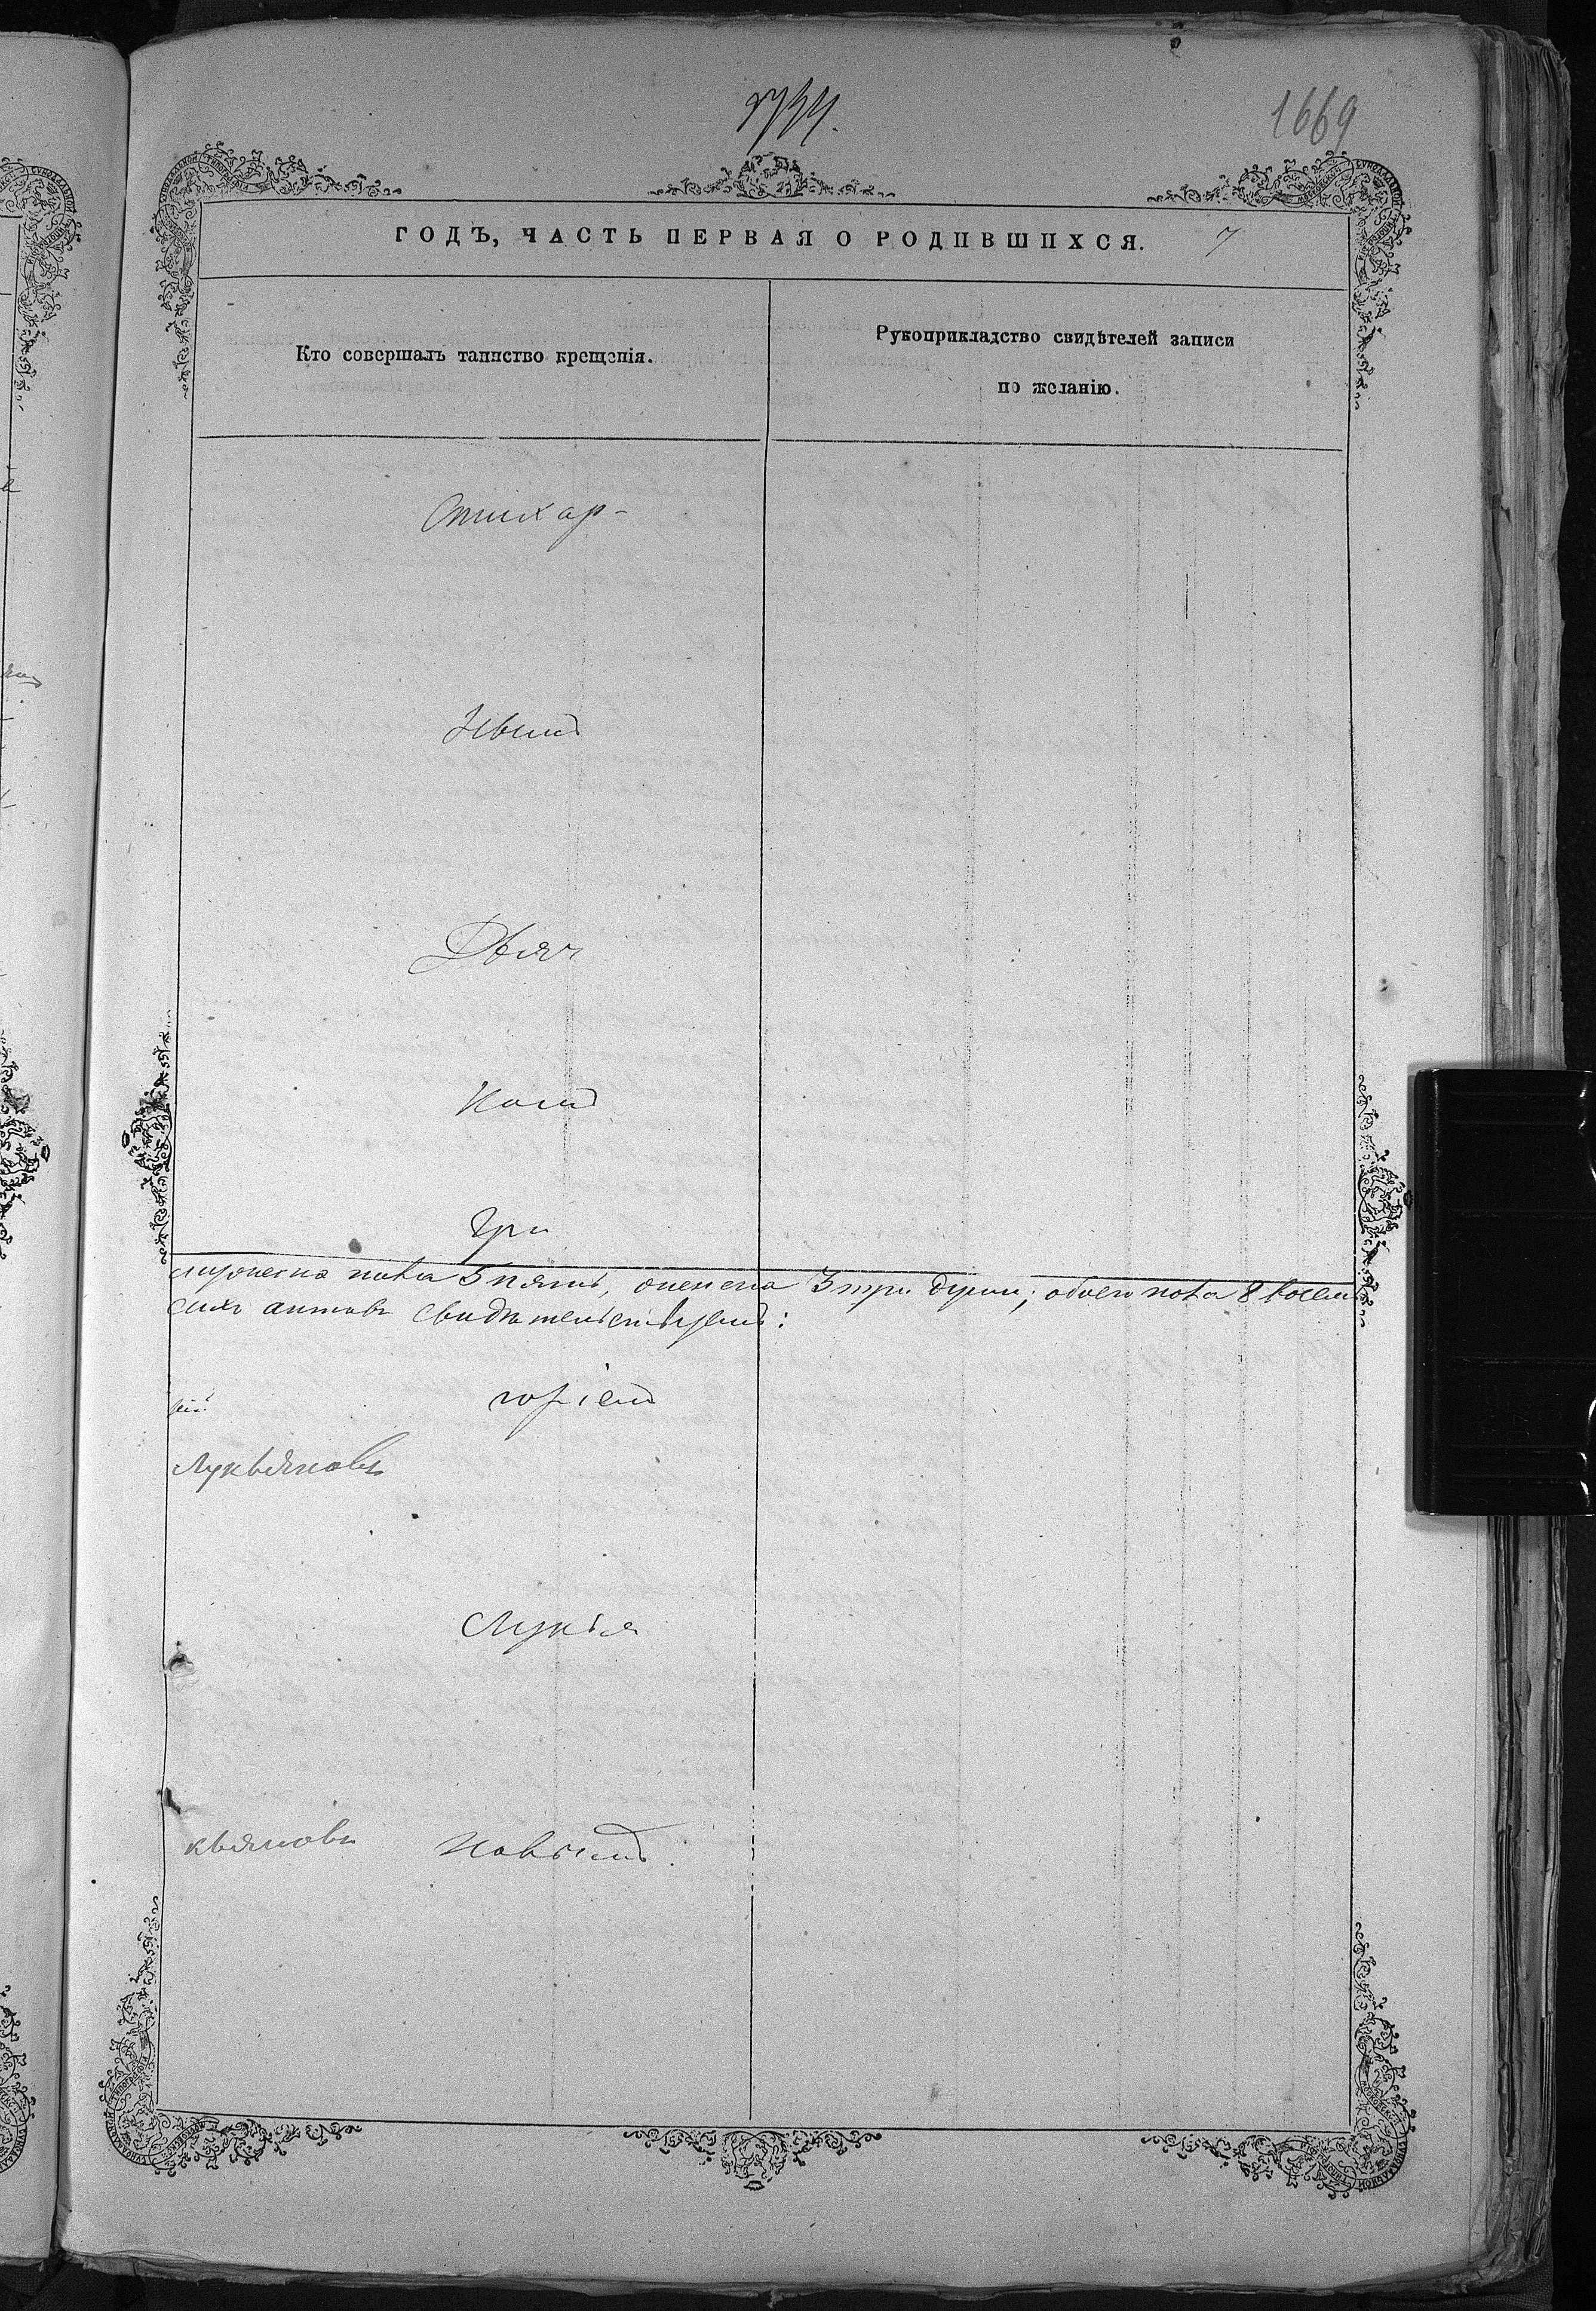 1669
ГОДЪ, ЧАСТЬ ПЕРВАЯ О РОДИВШИХСЯ. 7
Кто совершалъ таинство крещенія.
Рукоприкладство свидѣтелей записи
по желанію.
Стихар-
нымъ
Дьяч
комъ
Гри
мужеска пола 5 пять, женска 3 три души; обоего пола 8 восемь
сихъ актовъ свидѣтельствуемъ:
горіемъ
Лукьяновъ
Лукья
кьяновъ новымъ.